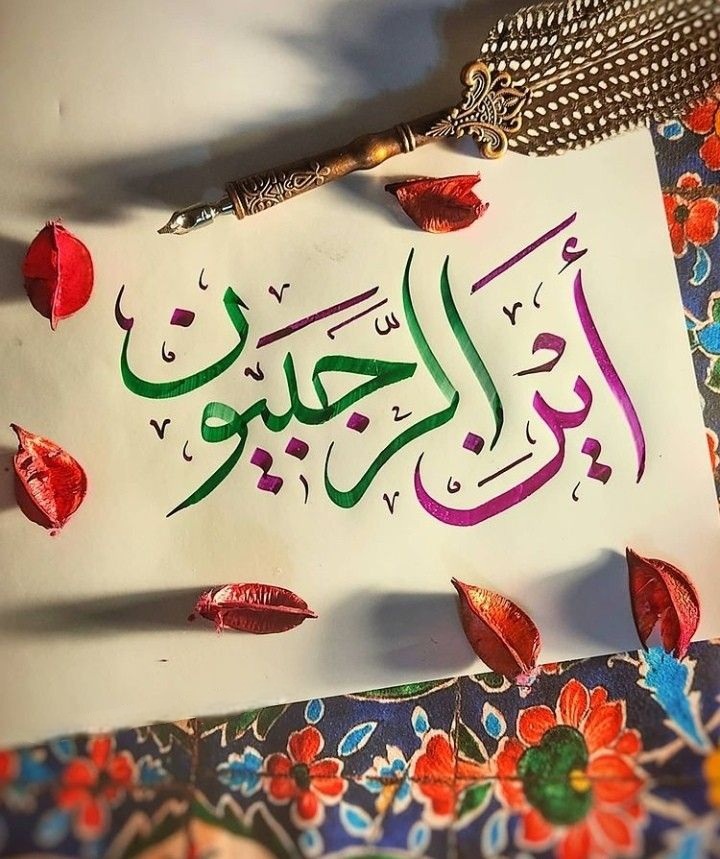 أَيْنَ الرَّجَبِيُّونَ